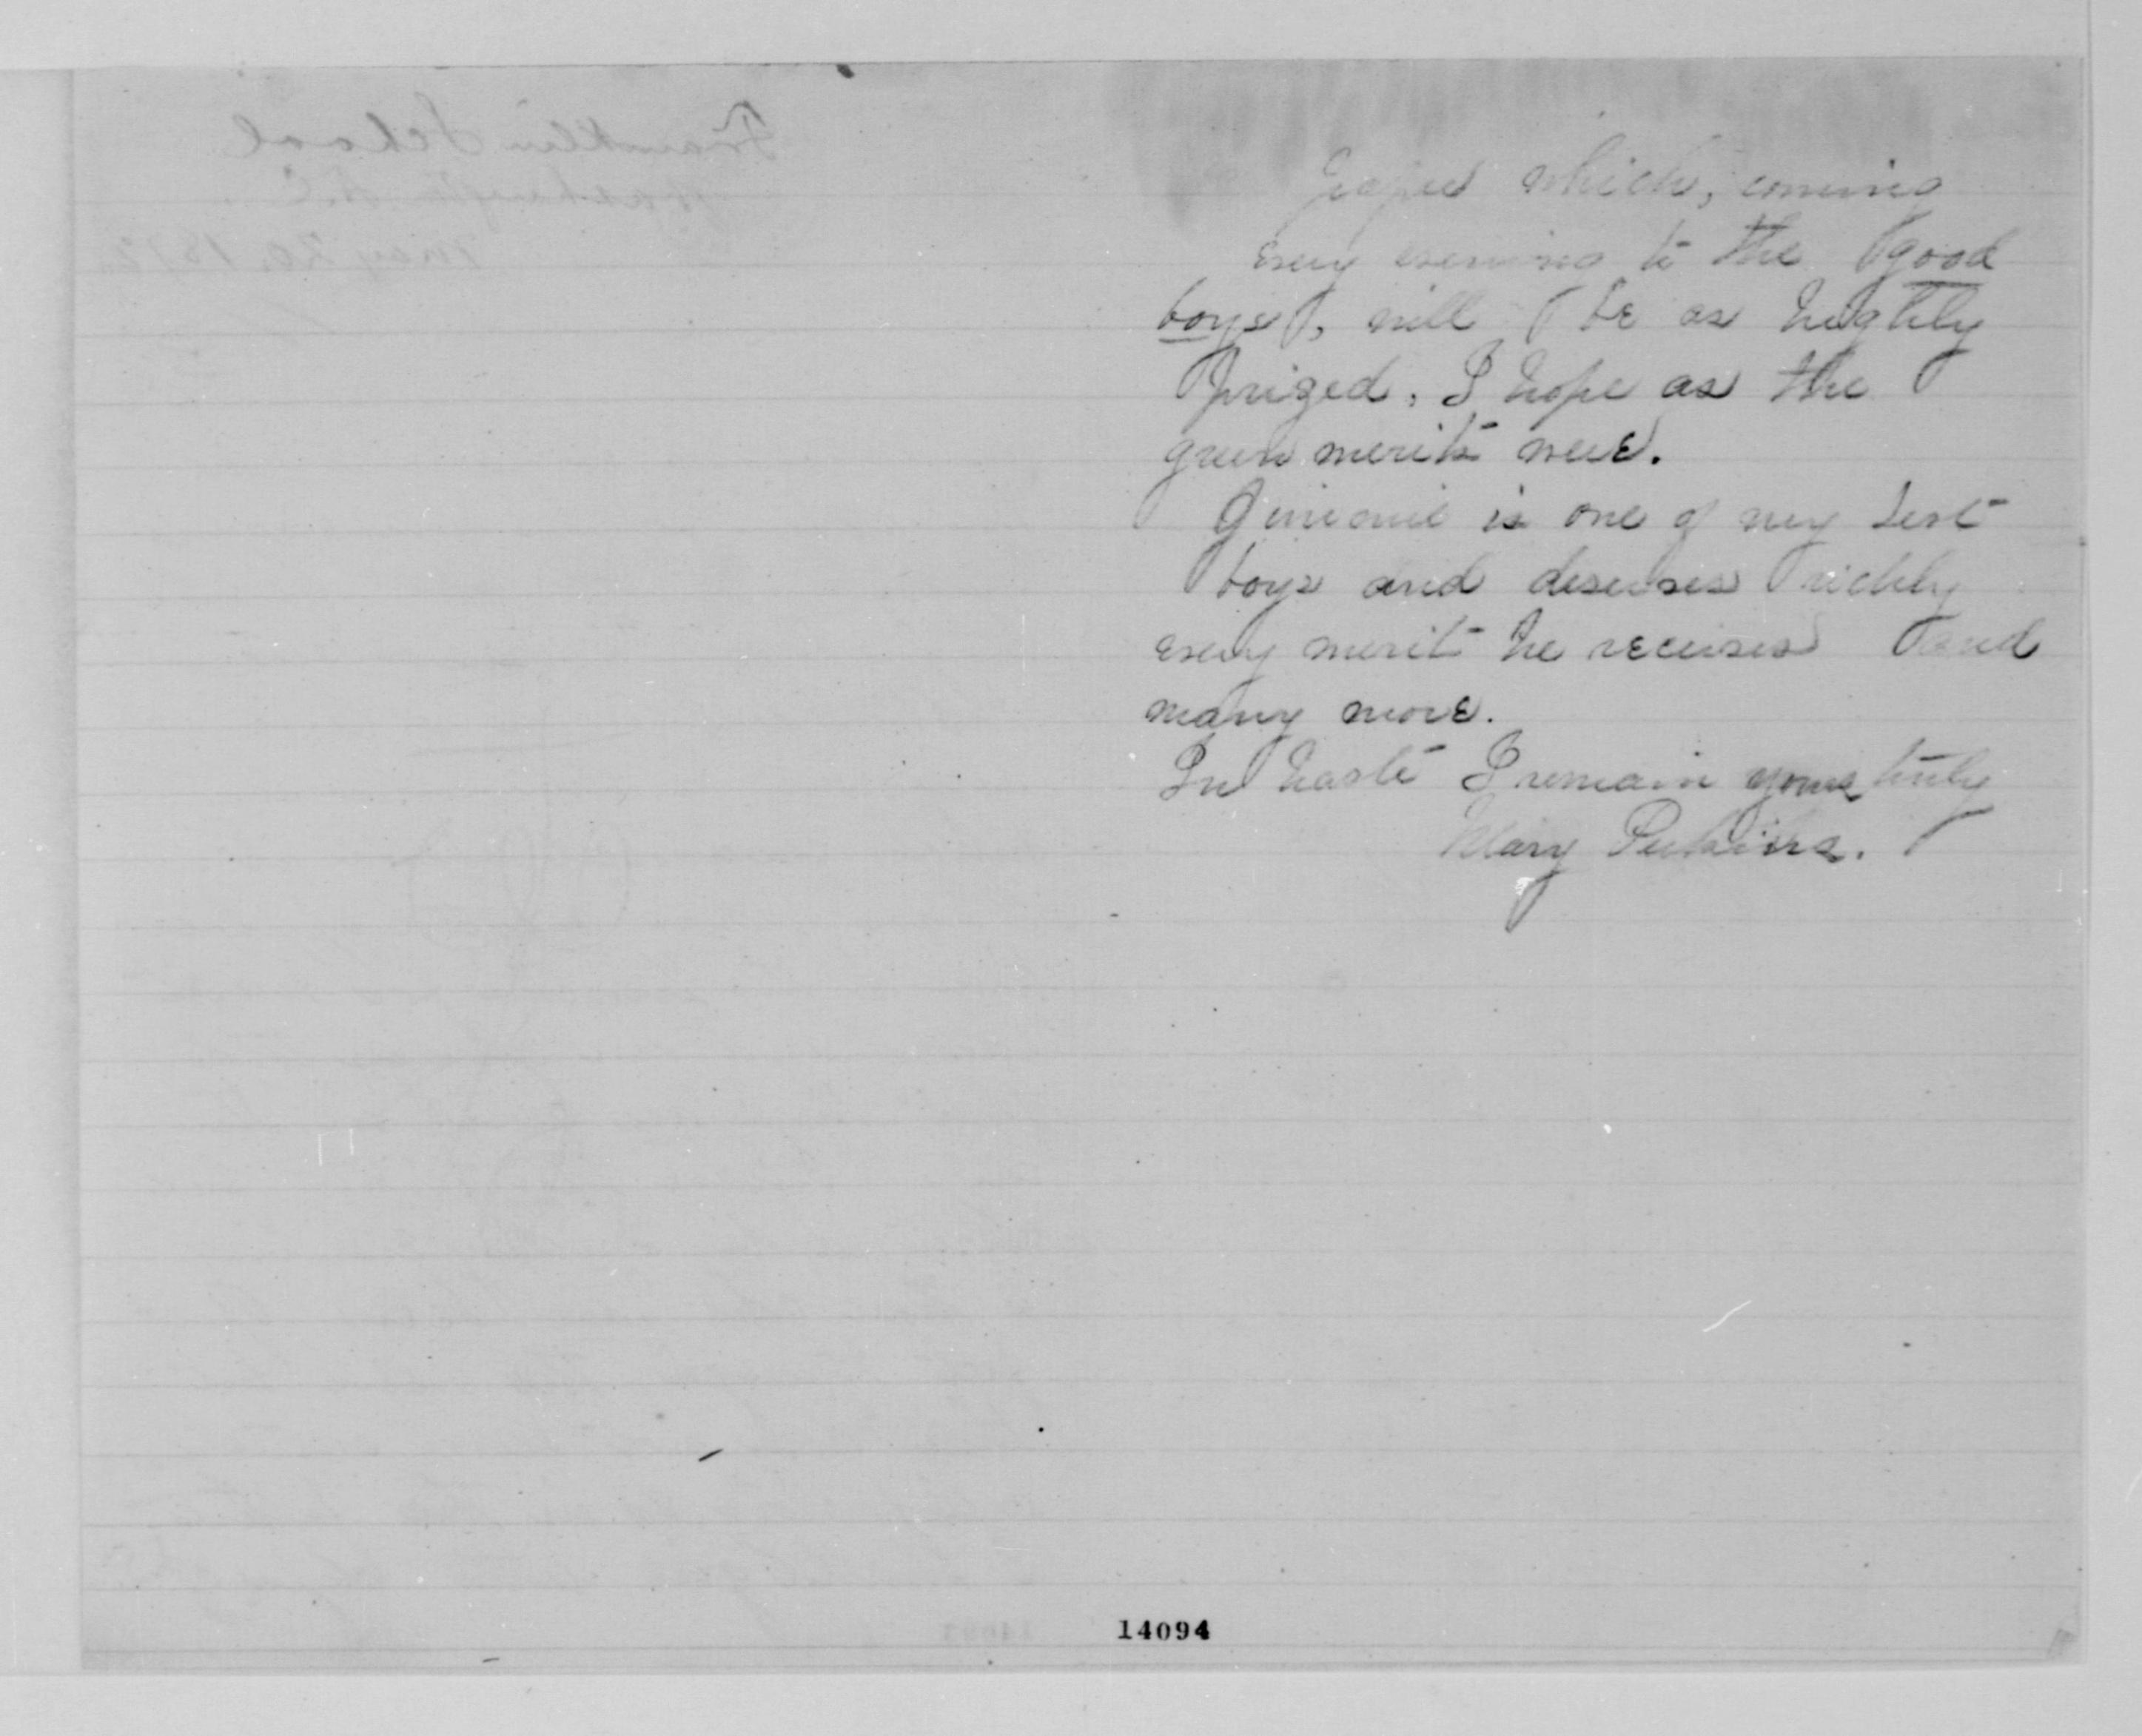 paper which, coming
every evening to the good
boys, will be as highly
prized, I hope as the
green merits were.
Jimmie is one of my best
boys and deserves richly
every merit he receives and
many more.
In haste I remain yours truly
Mary Perkins.
Franklin School
Washington D.C.
May 20, 1872
14094